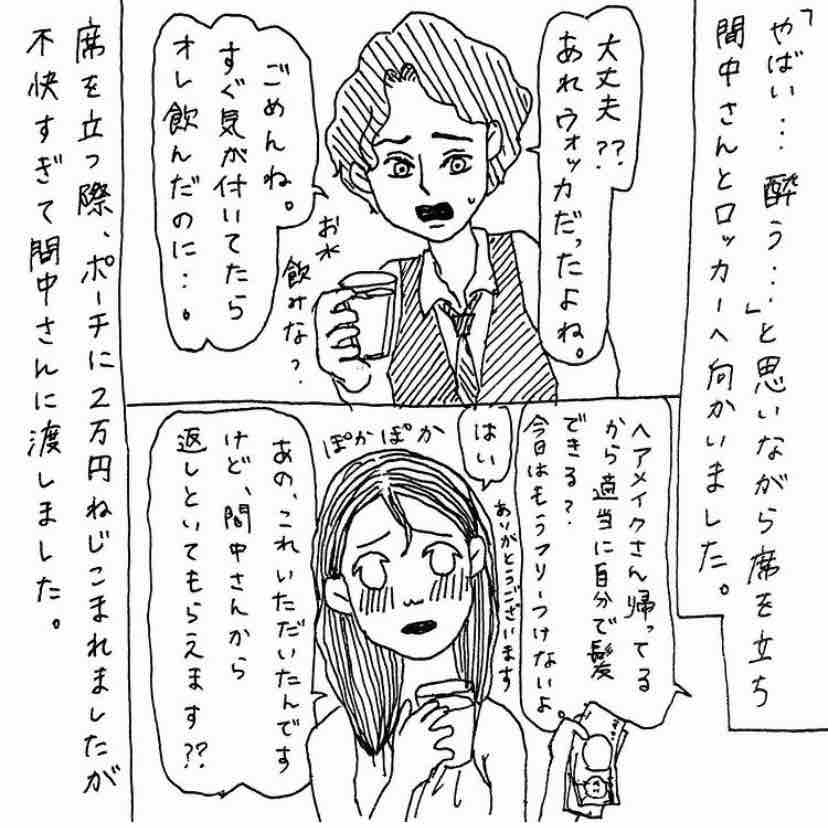 「やばい…酔う…」と思いながら席を立ち
間中さんとロッカーへ向かいました。
大丈夫??
あれウォッカだったよね。
ごめんね。
すぐ気が付いてたら
オレ飲んだのに…。
お水
飲みな?
ヘアメイクさん帰ってる
から適当に自分で髪
できる?
今日はもうフリーつけないよ。
はい
ありがとうございます
ぽかぽか
あの、これいただいたんです
けど、間中さんから
返しといてもらえます??
席を立つ際、ポーチに2万円ねじこまれましたが
不快すぎて間中さんに渡しました。